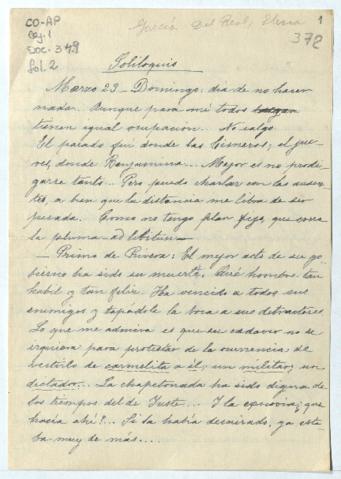 CO-AP
Caj. 1
Doc-349
fol. 2
García Del Real, Elena
1
372
Soliloquio
Marzo 23 - Domingo: día de no hacer
nada. Aunque para mí todos
tienen igual ocupación. No salgo
El pasado fui donde las Cisneros; el jue-
ves, donde Benjamina... Mejor es no prodi-
garse tanto... Pero puedo charlar con los ausen-
tes, a bien que la distancia me libra de ser
pesada. Como no tengo plan fijo, que corra
la pluma ad libitum
- Primo de Rivera: El mejor acto de su go-
bierno ha sido su muerte. Qué hombre tan
habil y tan feliz. Ha vencido a todos sus
enemigos y tapádole la boca a sus detractores.
Lo que me admira es que su cadaver no se
irguiera para protestar de la ocurrencia de
vestirlo de carmelita a él; un militar, un
dictador... La chapetonada ha sido digna de
los tiempos del de Yuste... Y la exnovia; que
hacía ahí?... Si la había desairado, ya esta-
ba muy de más....